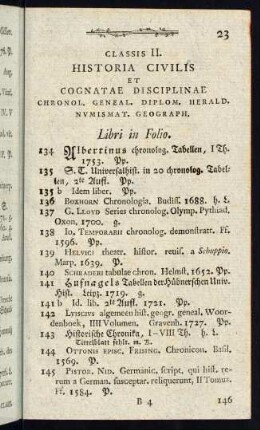 23
CLASSIS II.
HISTORIA CIVILIS
ET
COGNATAE DISCIPLINAE
CHRONOL. GENEAL. DIPLOM. HERALD.
NVMISMAT. GEOGRAPH.
Libri in Folio.
134 Albertinus chronolog. Tabellen, I Th.
1753. Pp.
135 S. T. Universalhist. in 20 chronolog. Tabel-
len, 2te Aufl. Pp.
135 b Idem liber. Pp.
136 BOXHORN Chronologia. Budiss. 1688. h. E.
137 G. LLOYD Series chronolog. Olymp. Pythiad.
Oxon. 1700. g.
138 IO. TEMPORARII chronolog. demonstratt. Ff.
1596. Pp.
139 HELVICI theatr. histor. revis. a Schuppio.
Marp. 1639. P.
140 SCHRADERI tabulae chron. Helmst. 1652. Pp.
141 Hufnagels Tabellen der Hübnerschen Univ.
Hist. Leipz. 1719. g.
141 b Id. lib. 2te Aufl. 1721. Pp.
142 LYSCIVS algemeen hist. geogr. geneal. Woor-
denboek, IIII Volumen. Gravenh. 1727. Pp.
143 Historische Chronika, I-VIII Th. h. E.
Titelblatt fehlt. m. K.
144 OTTONIS EPISC. FRISING. Chronicon. Basil.
1569. P.
145 PISTOR. NID. Germanic. script. qui hist. re-
rum a German. susceptar. reliquerunt, II Tomus.
Ff. 1584. P.
B 4 146